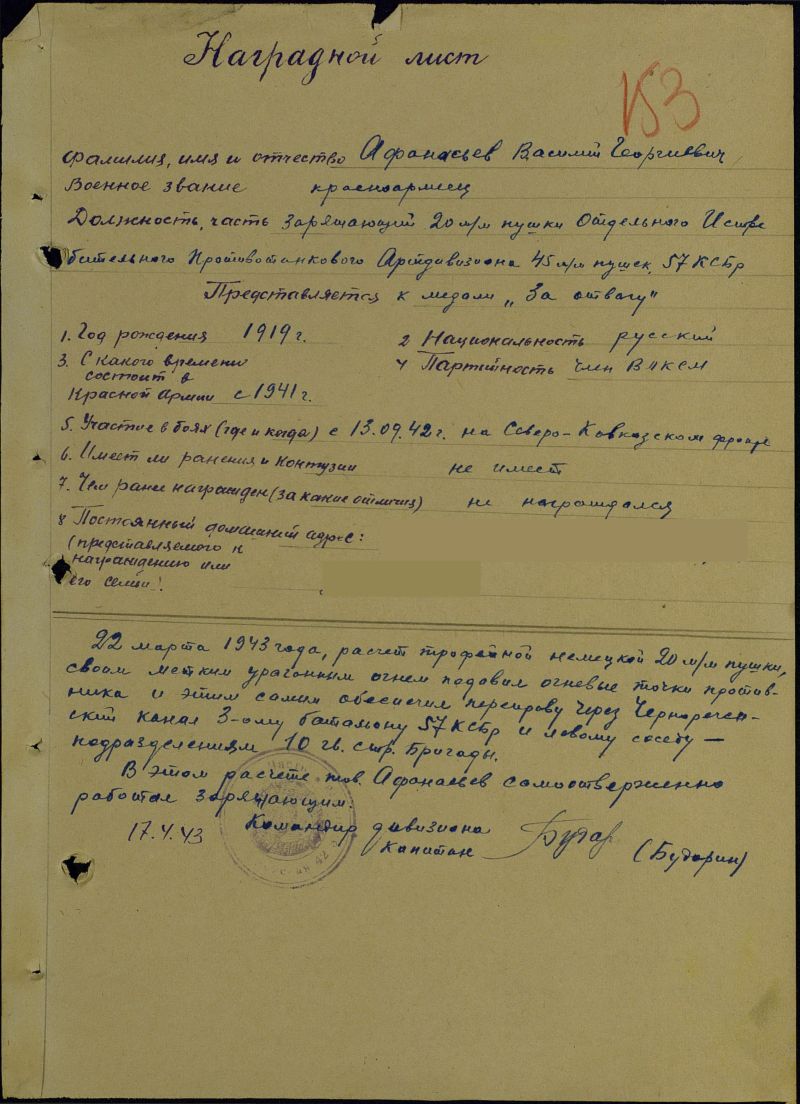 Наградной лист
153
Фамилия, имя и отчество Афанасьев Василий Георгиевич,
Военное звание красноармеец
Должность, часть заряжающий 20 м/м пушки Отдельного Истре
бительного Противотанкового Артдивизиона 45 м/м пушек, 57 КСБр
Представляется к медали „За отвагу"
1. Год рождения 1919 г. 2 Национальность русский
3. С какого времени состоит в Красной Армии с 1941 г. 4 Партийность член ВЛКСМ
5. Участие в боях (где и когда) с 13.09.42 г. на Северо-Кавказском фронте
6. Имеет ли ранения и контузии не имеет
7. Чем ранее награжден (за какие отличия) не награждался
8 Постоянный домашний адрес:
(представляемого к
награждению или
его семьи:
22 марта 1943 года, расчет трофейной немецкой 20 м/м пушки,
своим метким ураганным огнем подавил огневые точки против-
ника и этим самим обеспечил переправу через Чернореченский
канал 3-ому батальону 57 КСБр и левому соседу —
подразделениям 10 гв. стр. Бригады.
В этом расчете тов. Афанасьев самоотверженно
работал заряжающим.
17.4.43 Командир дивизиона
капитан (Бударин)